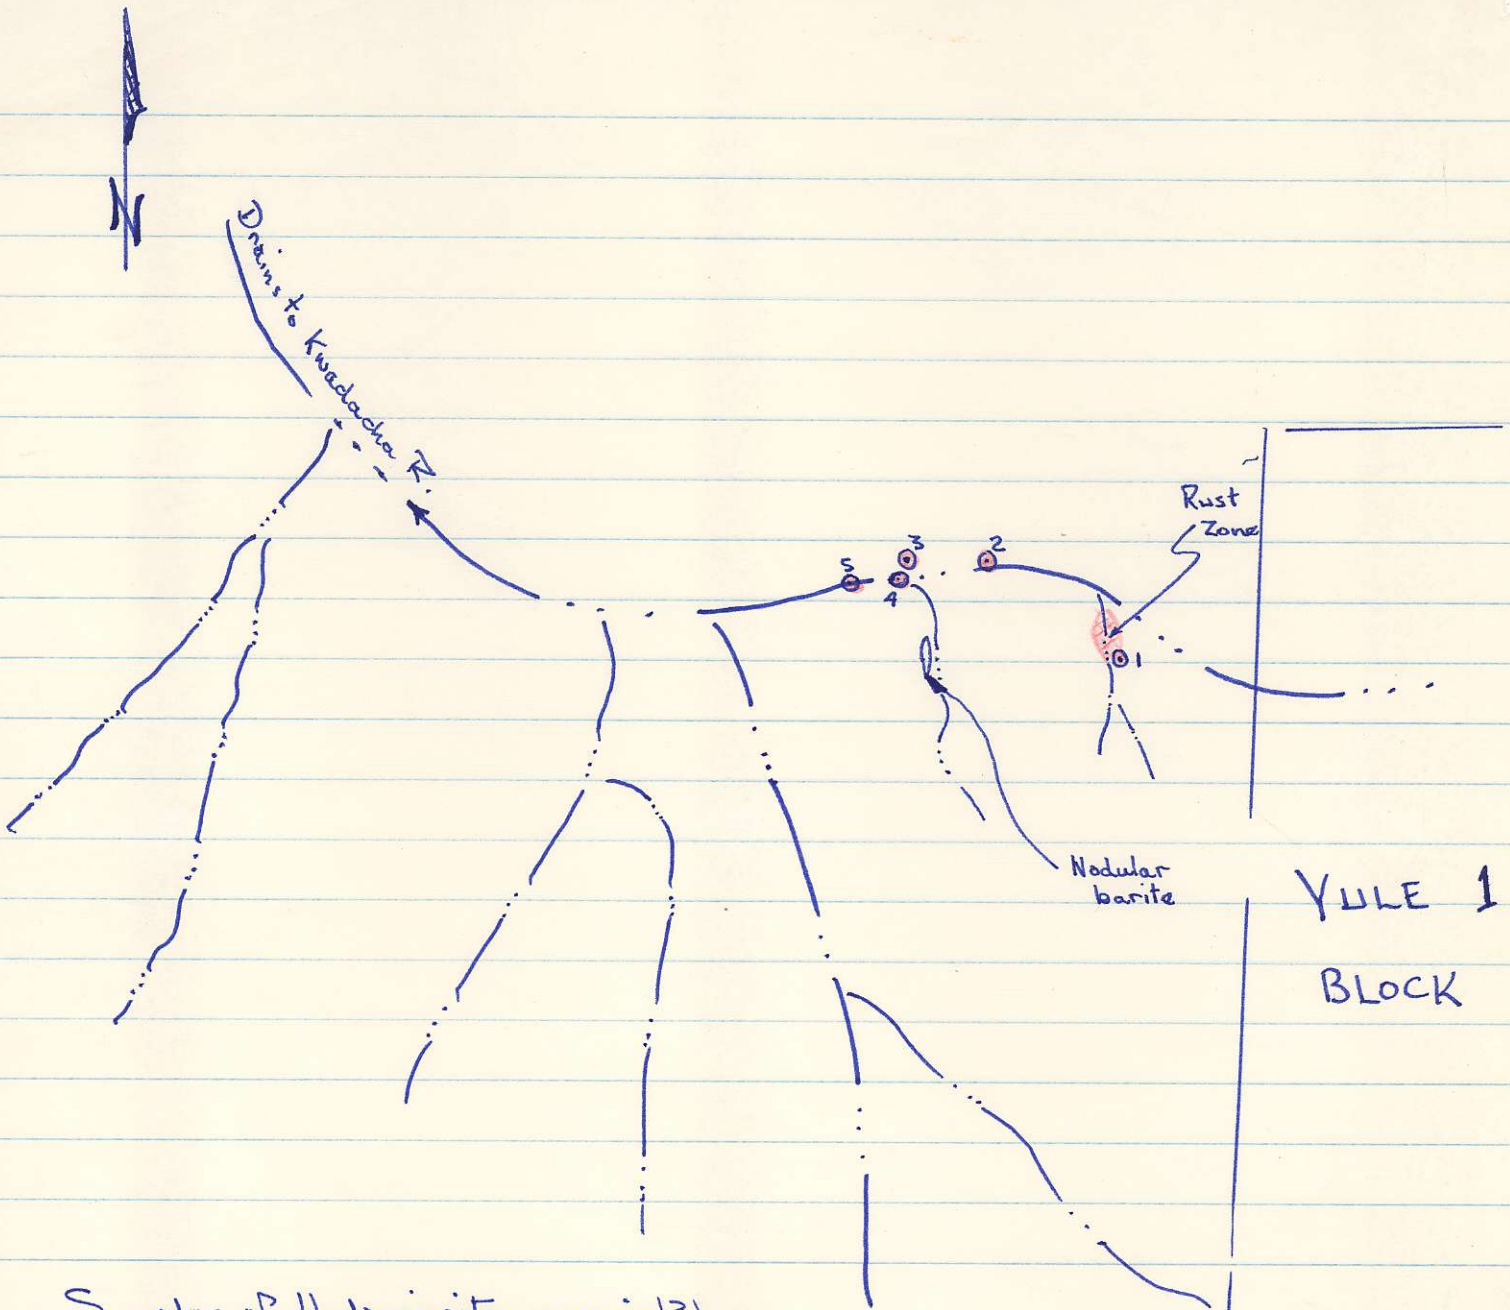 N
Drains to Kwadacha R.
Rust
Zone
3
2
5
4
1
Nodular
barite
YULE 1
BLOCK